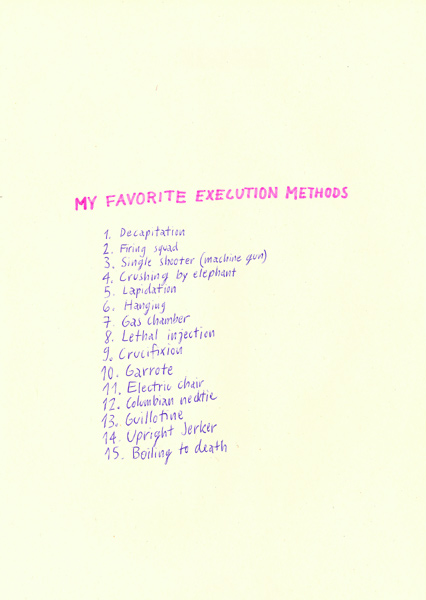 MY FAVORITE EXECUTION METHODS
1. Decapitation
2. Firing squad
3. Single shooter (machine gun)
4. Crushing by elephant
5. Lapidation
6. Hanging
7. Gas chamber
8. Lethal injection
9. Crucifixion
10. Garrote
11. Electric chair
12. Columbian necktie
13. Guillotine
14. Upright Jerker
15. Boiling to death